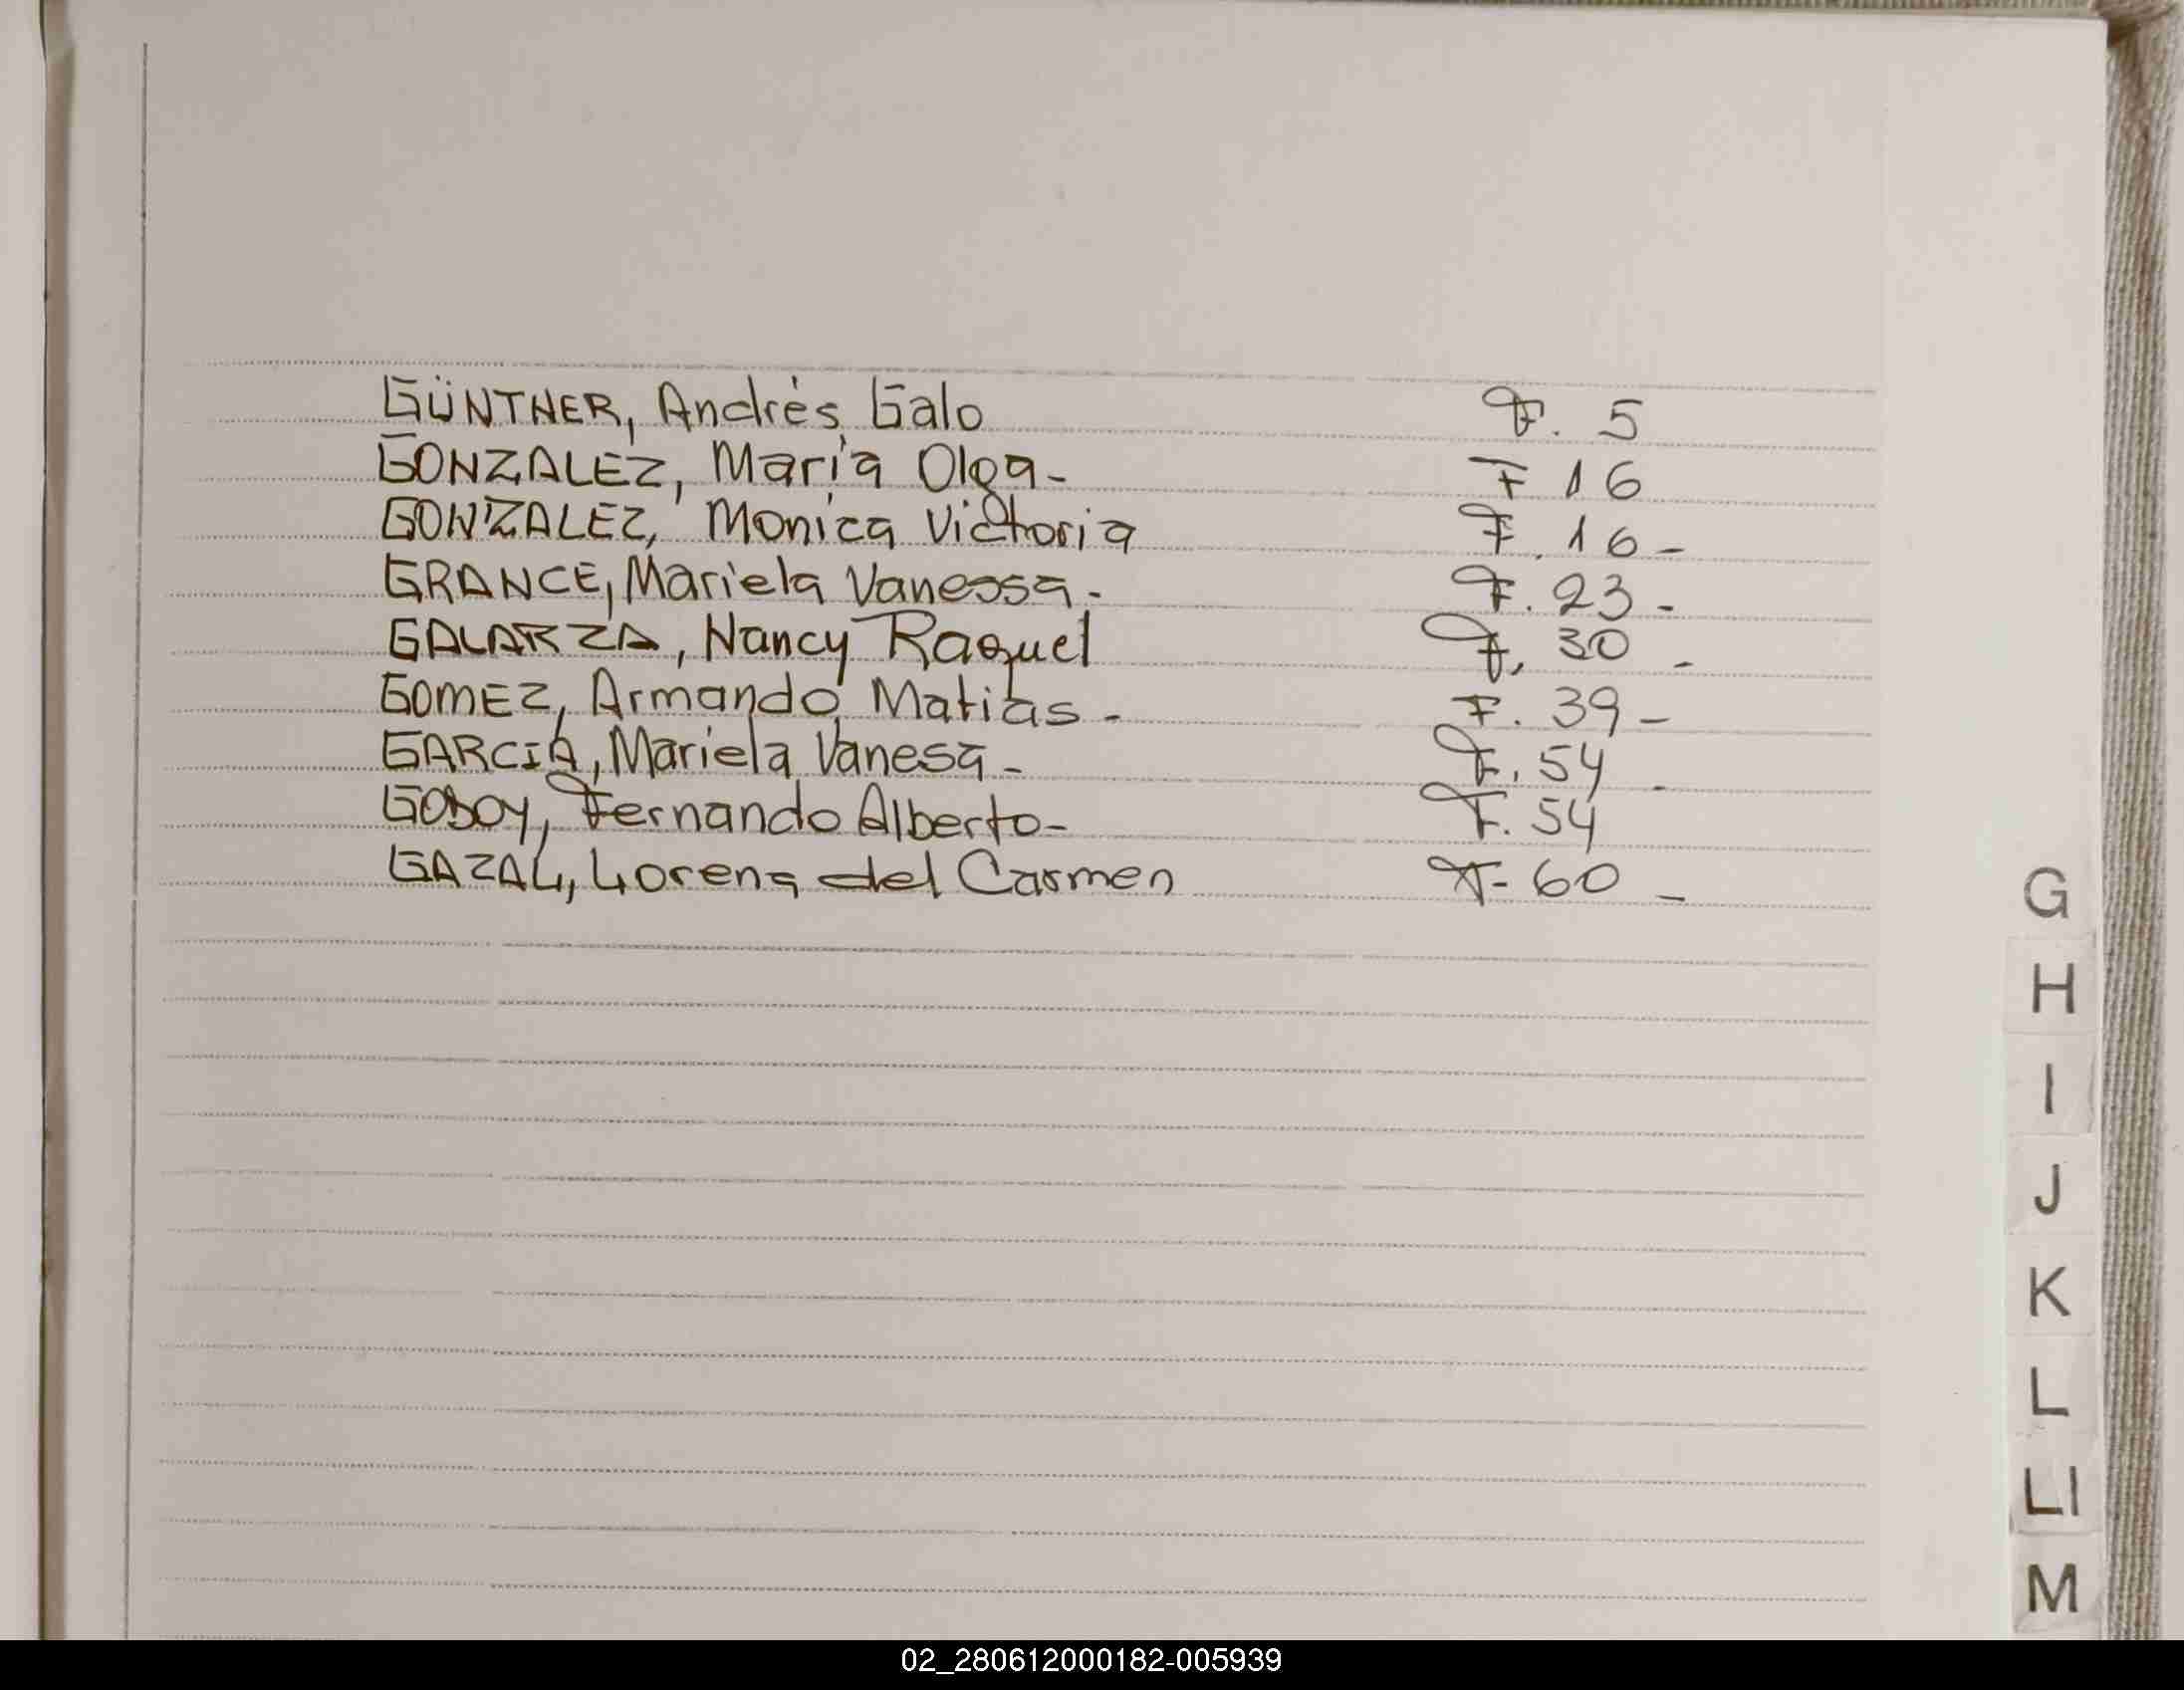 GÜNTHER, Andrés Galo F. 5
GONZALEZ, María Olga- F 16
GONZALEZ, Monica Victoria F. 16-
GRANCE, Mariela Vanessa- F. 23-
GALARZA, Nancy Raquel F. 30-
GOMEZ, Armando Matías- F. 39-
GARCIA, Mariela Vanesa- F. 54-
GODOY, Fernando Alberto- F. 54
GAZAL, Lorena del Carmen F- 60-
G
H
I
J
K
L
Ll
M
02_280612000182-005939